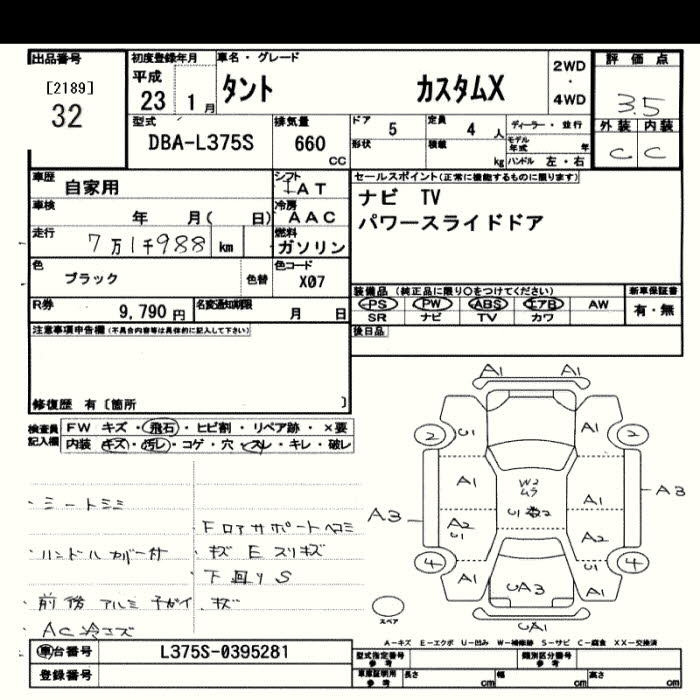 出品番号
[2189]
32
初度登録年月
平成
23 1月
車名・グレード
タント カスタムX
2WD
・
4WD
評価点
3.5
外装 内装
C C
型式
DBA-L375S
排気量
660
CC
ドア 5
定員 4 人
形状
積載 kg
ディーラー・並行
モデル年式 年
ハンドル 左・右
車歴
自家用
シフト
IAT
車検
年 月( 日)
冷房
AAC
走行
7万1千988 km
燃料
ガソリン
色
ブラック
色替
色コード
X07
R券
9,790円
名変通知期限
月 日
セールスポイント(正常に機能するものに限ります)
ナビ TV
パワースライドドア
装備品(純正品に限り○をつけてください)
PS PW ABS エアB AW
SR ナビ TV カワ
新車保証書
有・無
後日品
注意事項申告欄(不具合内容等は具体的に記入して下さい)
修復歴 有〔箇所 〕
検査員記入欄
FW キズ・飛石・ヒビ割・リペア跡・×要
内装 キズ・汚レ・コゲ・穴・スレ・キレ・破レ
・シートシミ
・ハンドルカバー付
・前後アルミ キズ
・AC冷エズ
Fロアサポートヘコミ
・キズ E スリキズ
下回りS
A1 A1
2 U1 A1 2
A1 W2
ムラ A1
A3 A3
A2
U1 U1 A2
4 A1 UA3 U1
A1 4
UA1
スペア
A-キズ E-エクボ U-凹み W-補修跡 S-サビ C-腐食 XX-交換済
車台番号
L375S-0395281
登録番号
型式指定番号
参考
類別区分番号
参考
車庫証明用
参考
長さ cm
幅 cm
高さ cm